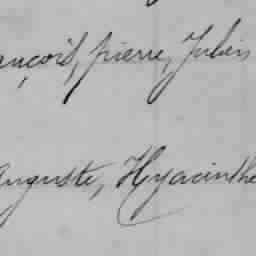 ançois, pierre, Julien
Auguste, Hyacinthe